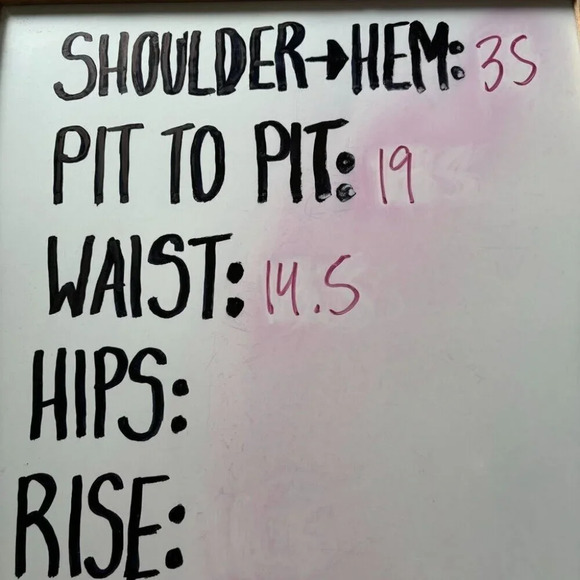 SHOULDER→HEM: 35
PIT TO PIT: 19
WAIST: 14.5
HIPS:
RISE: